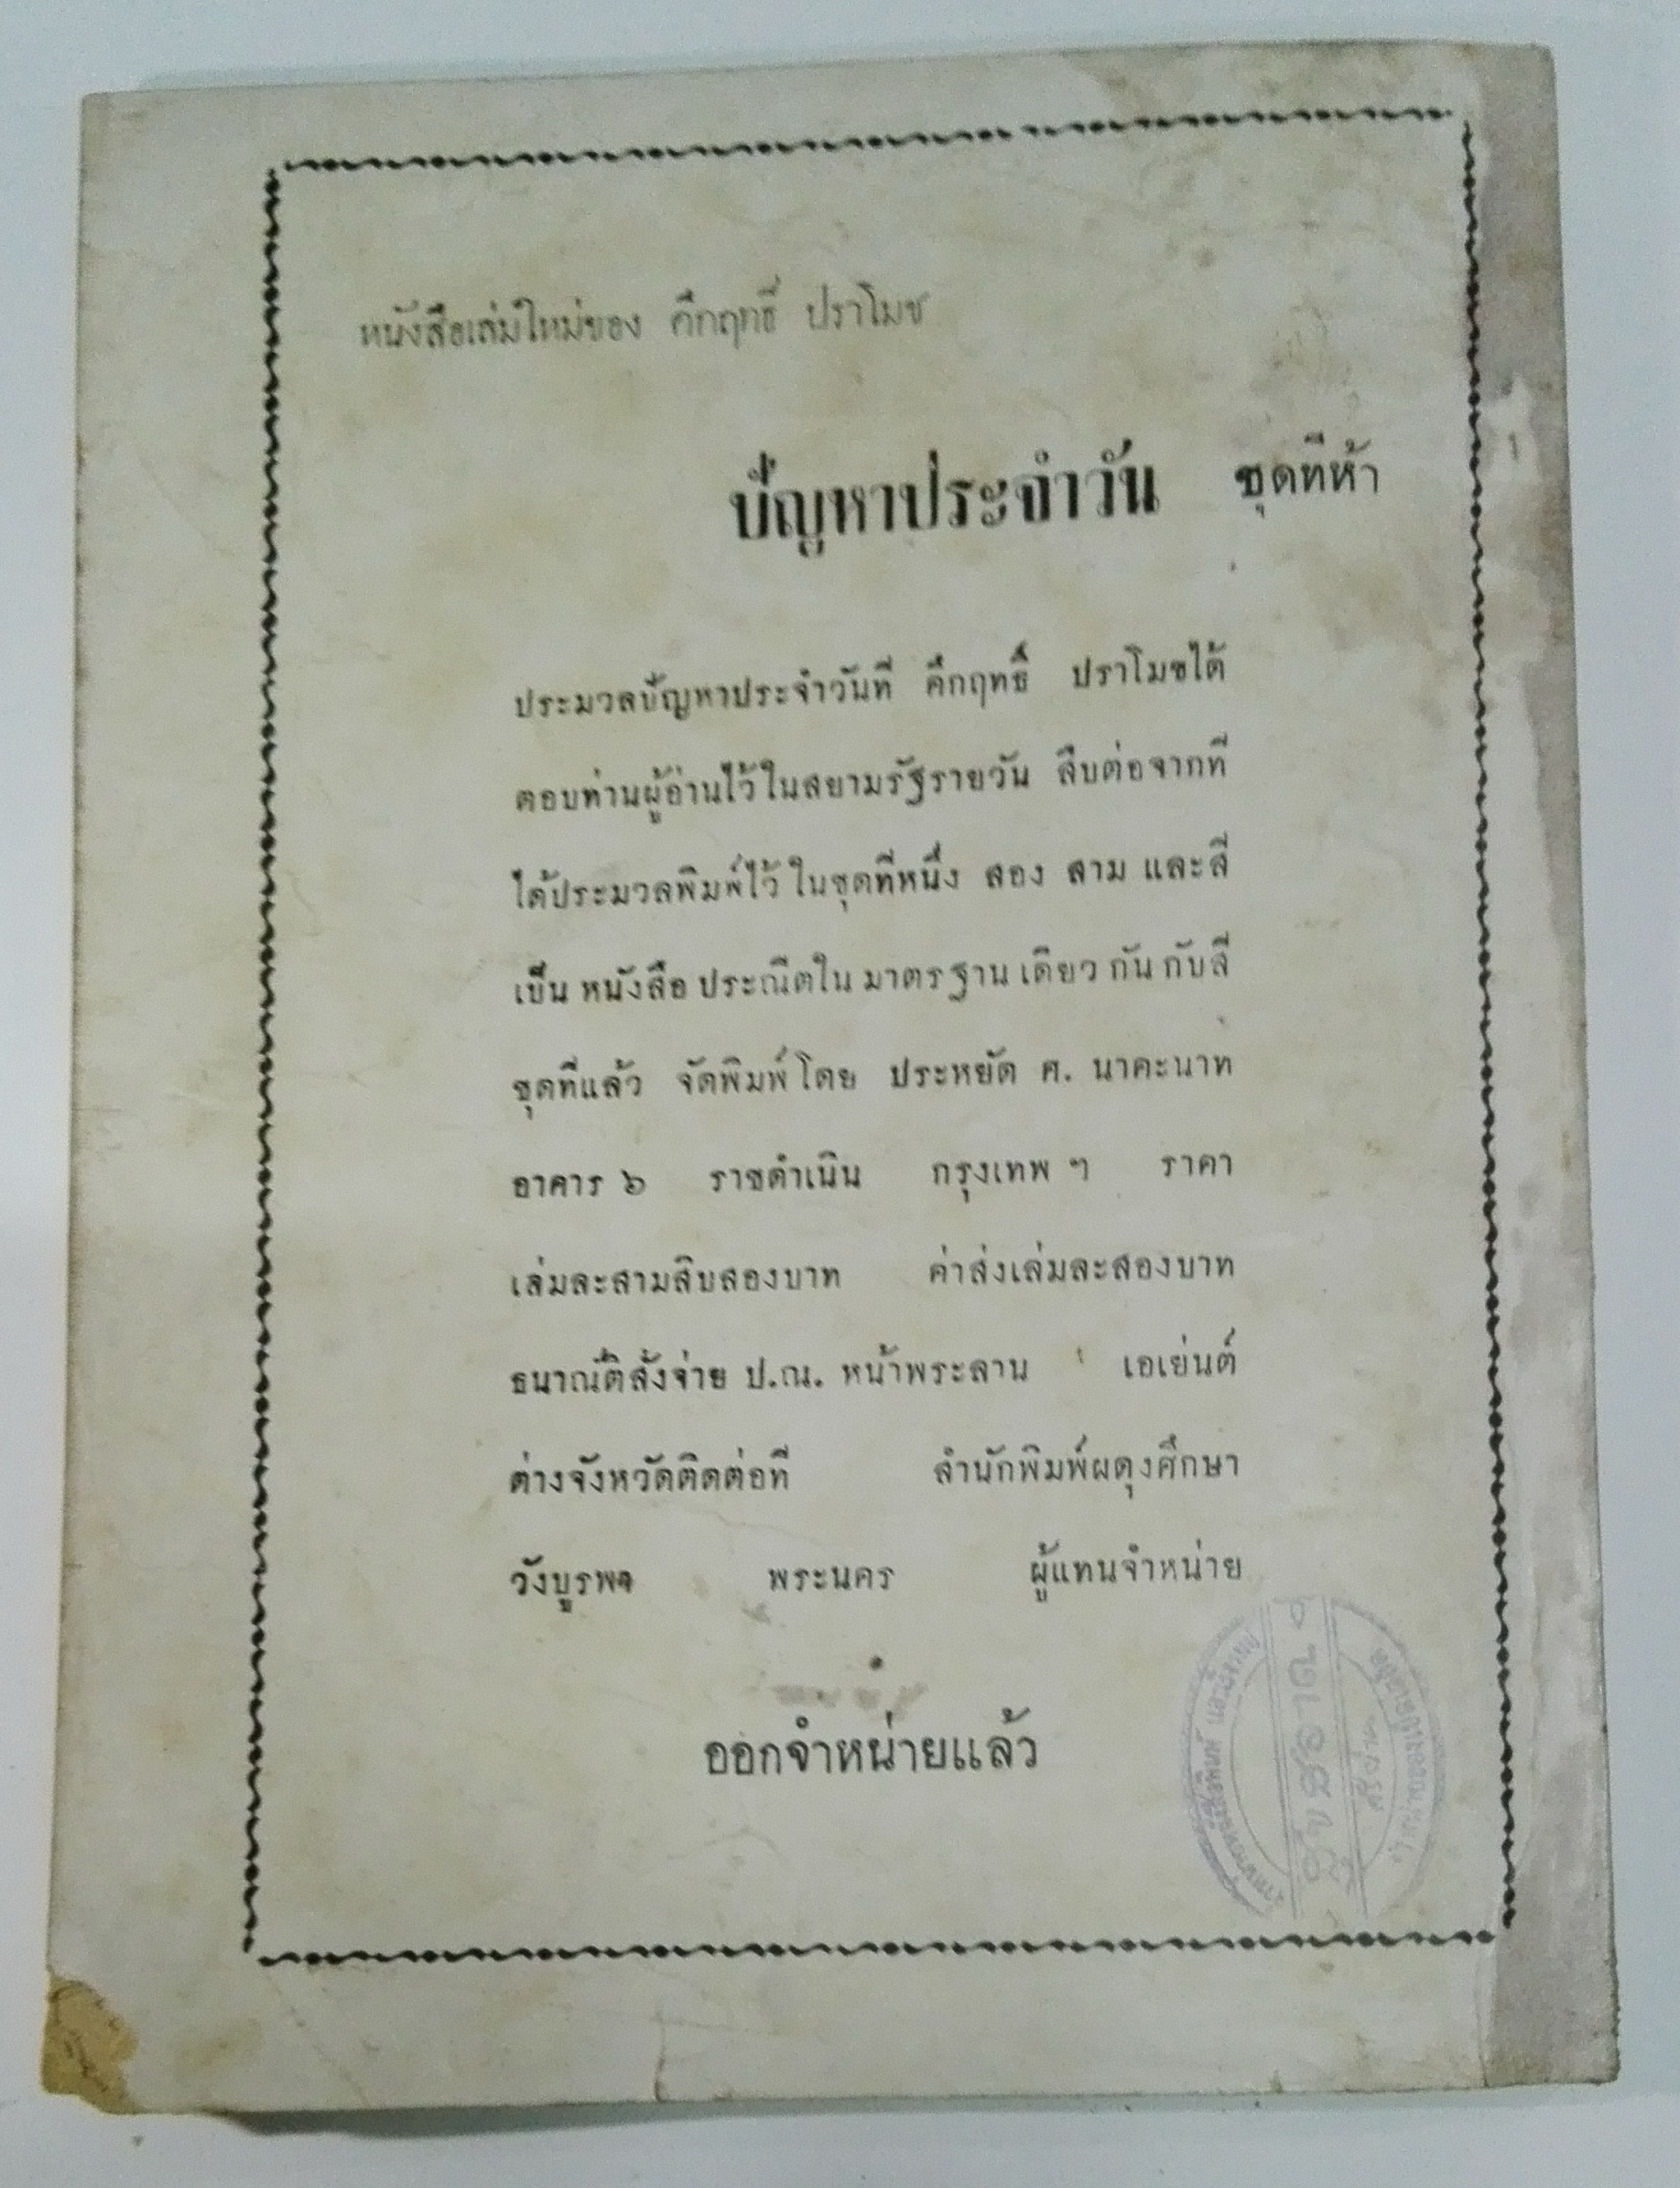 หนังสือเล่มใหม่ของ คึกฤทธิ์ ปราโมช
ปัญหาประจำวัน ชุดที่ห้า
ประมวลปัญหาประจำวันที่ คึกฤทธิ์ ปราโมชได้
ตอบท่านผู้อ่านไว้ในสยามรัฐรายวัน สืบต่อจากที่
ได้ประมวลพิมพ์ไว้ ในชุดที่หนึ่ง สอง สาม และสี่
เป็น หนังสือ ประณีตใน มาตรฐาน เดียว กัน กับสี่
ชุดที่แล้ว จัดพิมพ์ โดย ประหยัด ศ. นาคะนาท
อาคาร ๖ ราชดำเนิน กรุงเทพ ฯ ราคา
เล่มละสามสิบสองบาท ค่าส่งเล่มละสองบาท
ธนาณัติสั่งจ่าย ป.ณ. หน้าพระลาน เอเย่นต์
ต่างจังหวัดติดต่อที่ สำนักพิมพ์ผดุงศึกษา
วังบูรพา พระนคร ผู้แทนจำหน่าย
ออกจำหน่ายแล้ว